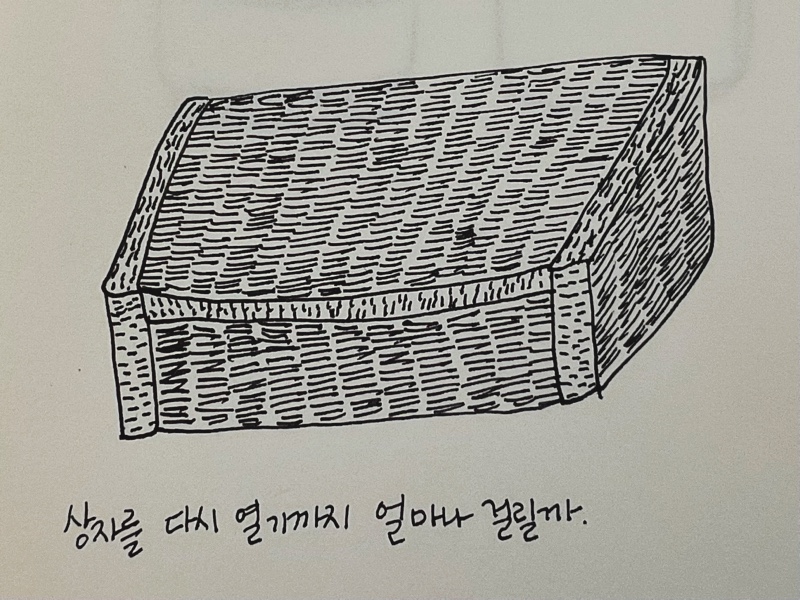 상자를 다시 열기까지 얼마나 걸릴까.